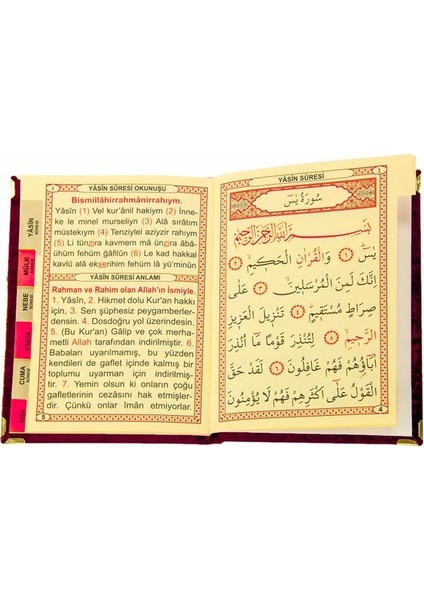 YÂSÎN SÛRESİ
سُورَةُ يٰسٓ
بِسْمِ اللّٰهِ الرَّحْمٰنِ الرَّحِيمِ
يٰسٓ ﴿١﴾ وَالْقُرْاٰنِ الْحَكِيمِ ﴿٢﴾
اِنَّكَ لَمِنَ الْمُرْسَلِينَ ﴿٣﴾ عَلٰى
صِرَاطٍ مُسْتَقِيمٍ ﴿٤﴾ تَنْزِيلَ الْعَزِيزِ
الرَّحِيمِ ﴿٥﴾ لِتُنْذِرَ قَوْمًا مَٓا اُنْذِرَ
اٰبَٓاؤُهُمْ فَهُمْ غَافِلُونَ ﴿٦﴾ لَقَدْ حَقَّ
الْقَوْلُ عَلٰٓى اَكْثَرِهِمْ فَهُمْ لَا يُؤْمِنُونَ
4
YÂSÎN SÛRESİ OKUNUŞU
Bismillâhirrahmânirrahıym.
Yâsîn (1) Vel kur'ânil hakiym (2) İnne-
ke le minel murseliyn (3) Alâ sırâtım
müstekıym (4) Tenziylel aziyzir rahıym
(5) Li tünzira kavmem mâ ünzira âbâ-
ühüm fehüm ğâfilûn (6) Le kad hakkal
kavlü alâ ekserihim fehüm lâ yü'minûn
YÂSÎN SÛRESİ ANLAMI
Rahman ve Rahim olan Allah'ın İsmiyle.
1. Yâsîn, 2. Hikmet dolu Kur'an hakkı
için, 3. Sen şüphesiz peygamberler-
densin. 4. Dosdoğru yol üzerindesin.
5. (Bu Kur'an) Gâlip ve çok merha-
metli Allah tarafından indirilmiştir. 6.
Babaları uyarılmamış, bu yüzden
kendileri de gaflet içinde kalmış bir
toplumu uyarman için indirilmiş-
tir. 7. Yemin olsun ki onların çoğu
gafletlerinin cezasını hak etmişler-
dir. Çünkü onlar îman etmiyorlar.
5
YÂSÎN
SÛRESİ
MÜLK
SÛRESİ
NEBE
SÛRESİ
CUMA
SÛRESİ